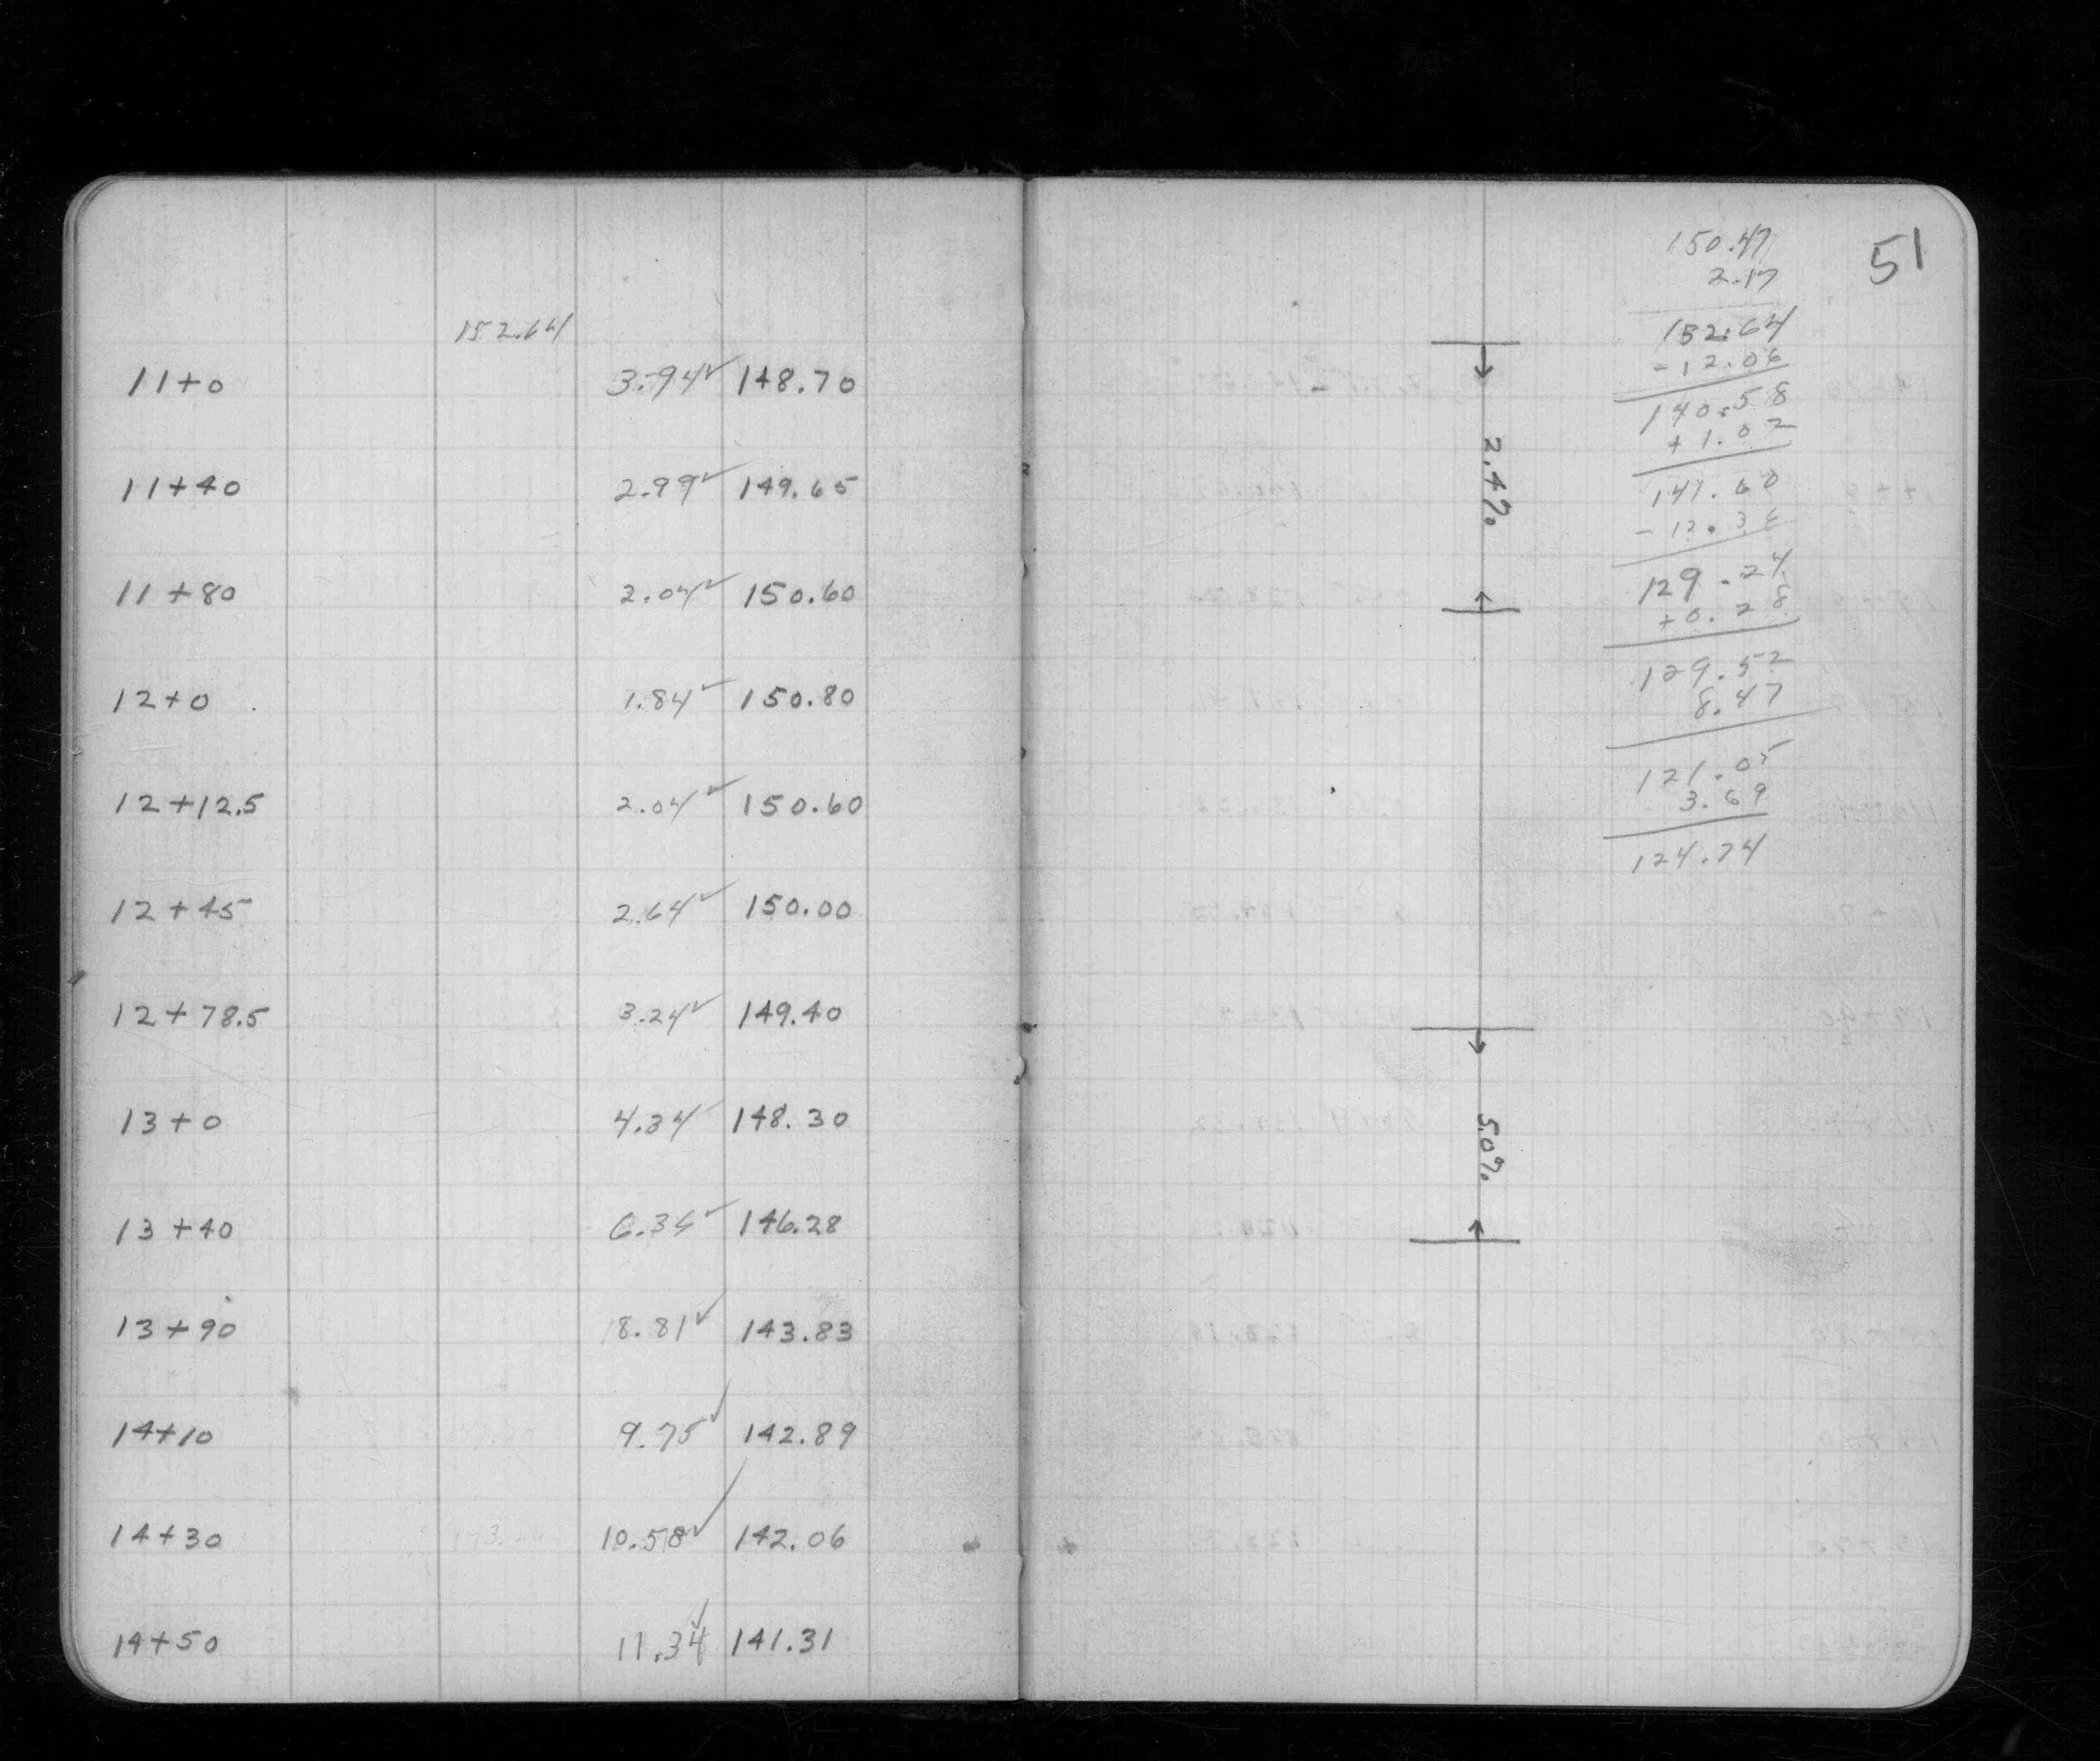 152.64
11+0 3.94✓ 148.70
11+40 2.99✓ 149.65
11+80 2.04✓ 150.60
12+0 1.84✓ 150.80
12+12.5 2.04✓ 150.60
12+45 2.64✓ 150.00
12+78.5 3.24✓ 149.40
13+0 4.34✓ 148.30
13+40 6.36✓ 146.28
13+90 8.81✓ 143.83
14+10 9.75✓ 142.89
14+30 10.58✓ 142.06
14+50 11.34✓ 141.31
51
150.47
2.17
152.64
-12.06
140.58
+1.02
141.60
-12.36
129.24
+0.28
129.52
8.47
121.05
3.69
124.74
2.4%
5.0%